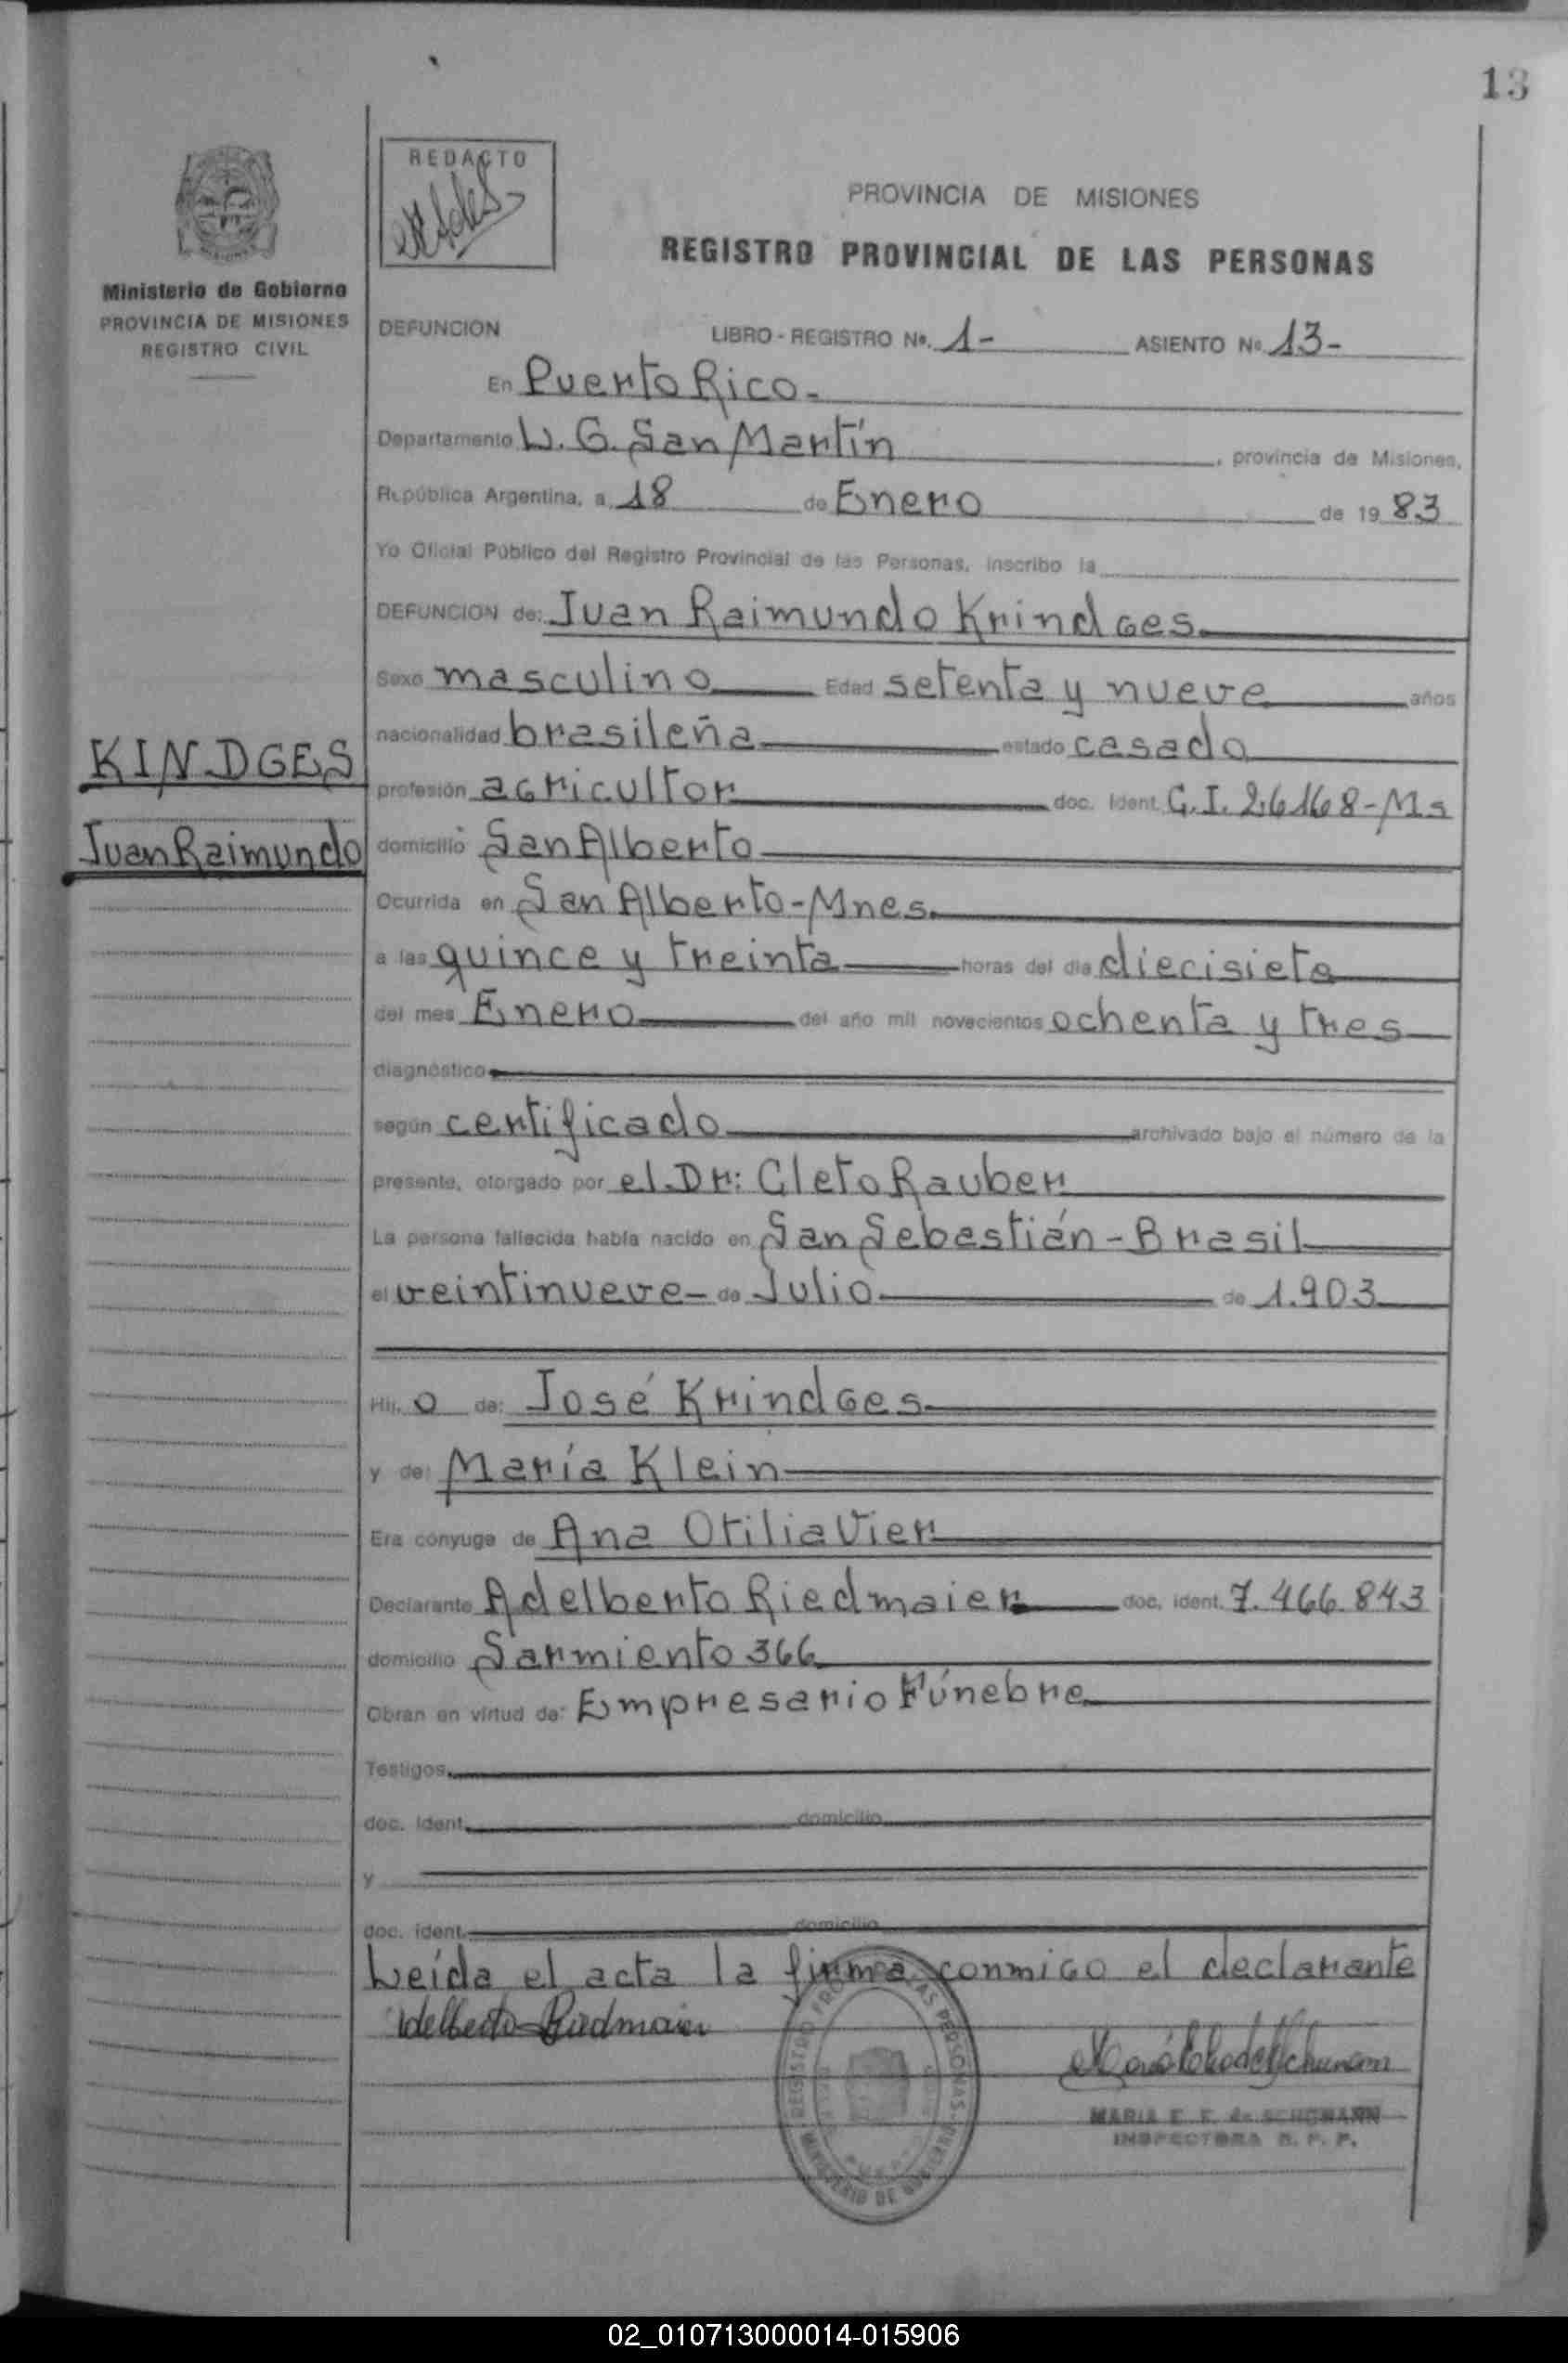 13
REDACTO
PROVINCIA DE MISIONES
REGISTRO PROVINCIAL DE LAS PERSONAS
Ministerio de Gobierno
PROVINCIA DE MISIONES
REGISTRO CIVIL
DEFUNCION LIBRO - REGISTRO Nº. 1- ASIENTO Nº 13-
En Puerto Rico.
Departamento L. G. San Martín, provincia de Misiones,
República Argentina, a 18 de Enero de 1983
Yo Oficial Público del Registro Provincial de las Personas, inscribo la
DEFUNCION de: Juan Raimundo Krindges
Sexo masculino Edad setenta y nueve años
nacionalidad brasileña estado casado
KINDGES
profesión agricultor doc. Ident. C.I. 26168-Ms
Juan Raimundo
domicilio San Alberto
Ocurrida en San Alberto-Mnes.
a las quince y treinta horas del día diecisiete
del mes Enero del año mil novecientos ochenta y tres
diagnóstico
según certificado archivado bajo el número de la
presente, otorgado por el Dr: Cleto Rauber
La persona fallecida había nacido en San Sebastián - Brasil
el veintinueve- de Julio de 1.903
Hij o de: José Krindges
y de: María Klein
Era cónyuge de Ana Otilia Vier
Declarante Adelberto Riedmaier doc. ident. 7.466.843
domicilio Sarmiento 366
Obran en virtud de: Empresario Fúnebre
Testigos
doc. ident. domicilio
y
doc. ident. domicilio
Leída el acta la firma conmigo el declarante
Adelberto Riedmaier
MARIA E. E. de SCHUMANN
INSPECTORA R. P. P.
02_010713000014-015906